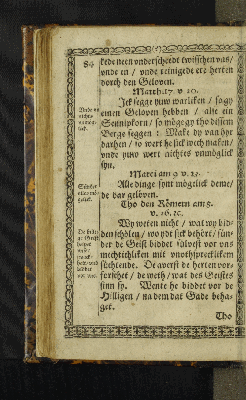 84
kede neen underscheidt twisschen uns/
unde en / unde reinigede ere herten
dorch den Geloven.
Matth. 17. v. 20.
Jck segge yuw warliken / so gy
einen Geloven hebben / alse ein
Sennipkorn / so möge gy tho dissem
Berge seggen : Make dy van hyr
darhen / so wert he sick wech maken /
unde yuw wert nichtes unmöglick
syn.
Marci am 9 v. 23.
Alle dinge synt mögelick deme/
de dar geloven.
Tho den Römern am 8.
v. 26.
Wy weten nicht / wat wy bid-
den schölen / wo ydt sick behört / sün-
der de Geist biddet sülvest vor uns
mechtichliken mit unuthsprecklikem
süchtende. De averst de herten vor-
forschet / de weth / wat des Geistes
sinn sy. Wente he biddet vor de
Hilligen / na dem dat Gade beha-
get.
Tho